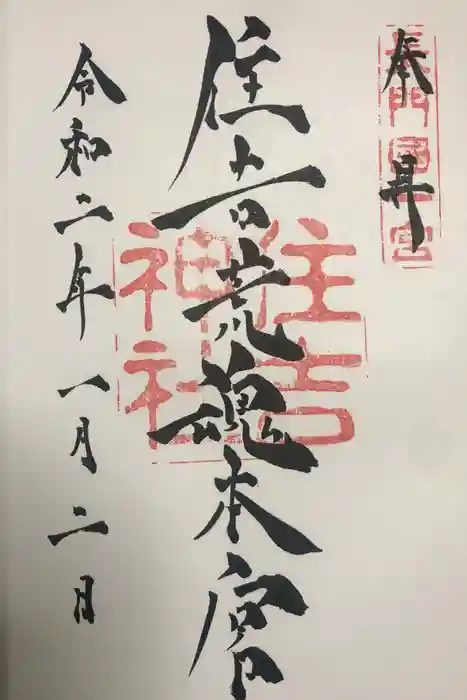 奉拝
長門国一宮
住吉荒魂本宮
住吉
神社
令和二年一月二日